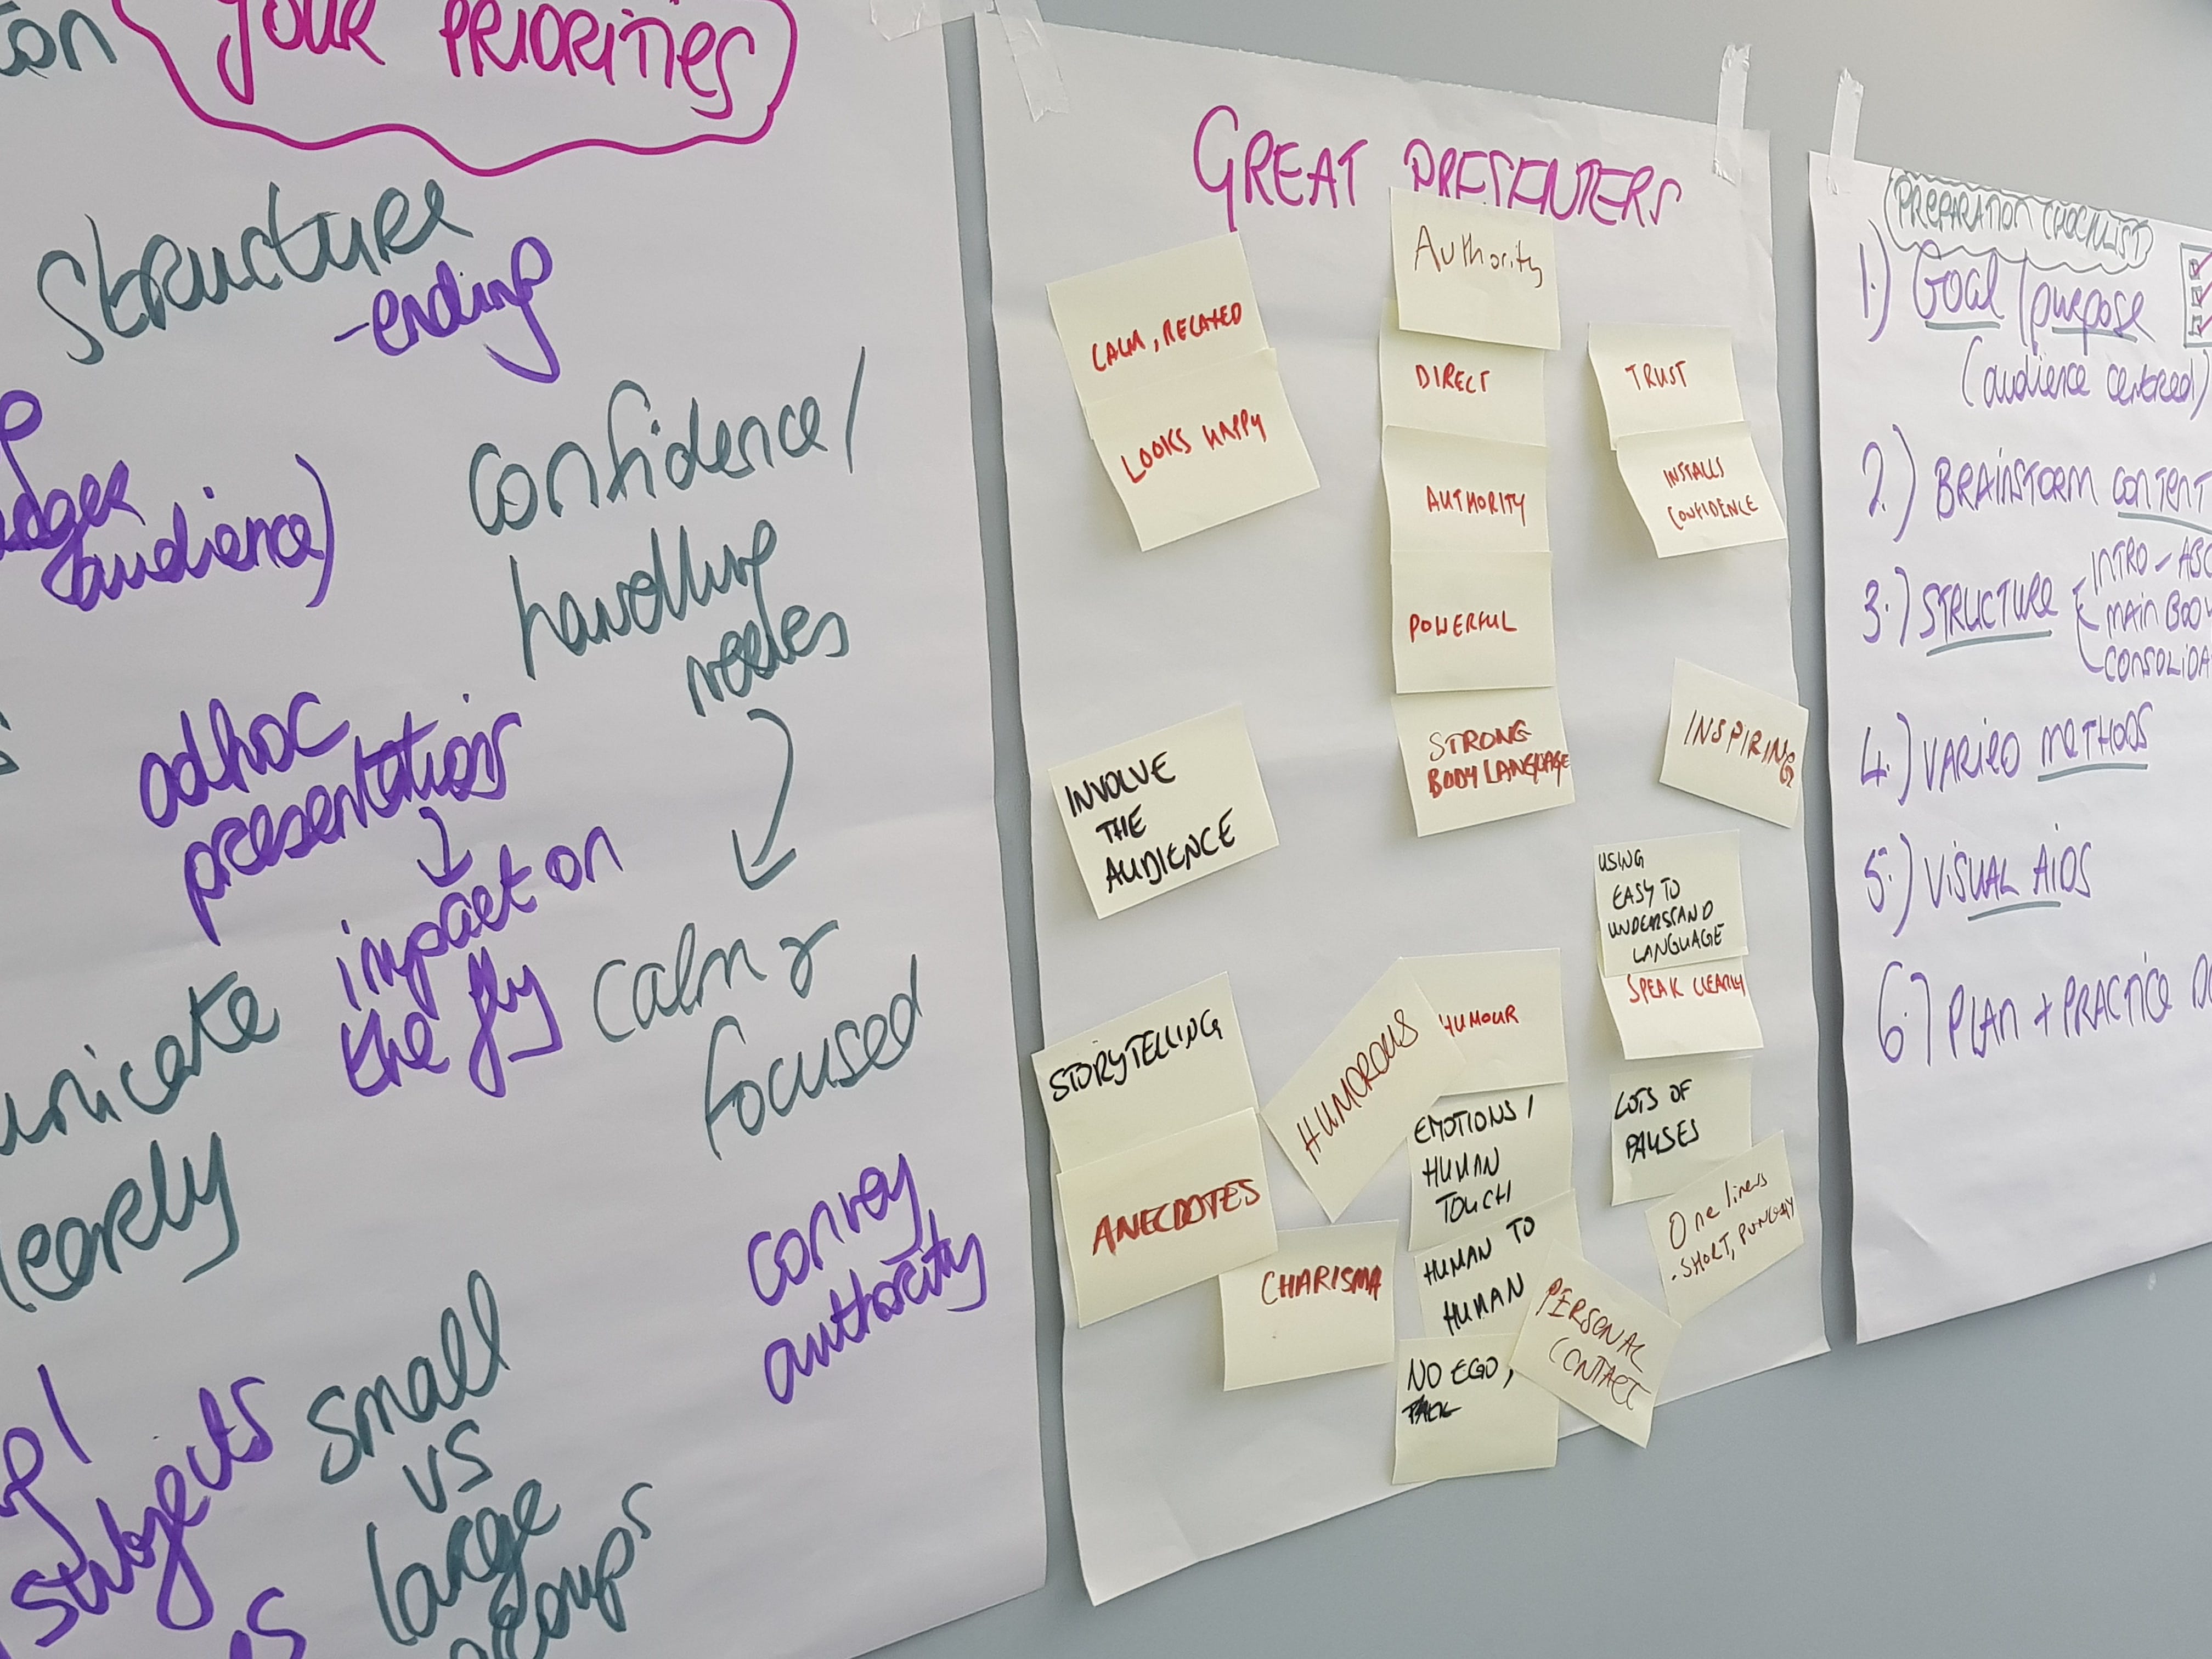 YOUR PRIORITIES
structure
-ending
audience)
confidence/
handling
adhoc
presentations
impact on
the fly
calm &
focused
convey
authority
subjects
small
vs
large
groups
GREAT PRESENTERS
Authority
CALM, RELATED
LOOKS HAPPY
DIRECT
AUTHORITY
POWERFUL
STRONG
BODY LANGUAGE
TRUST
INSTALLS
CONFIDENCE
INSPIRING
INVOLVE
THE
AUDIENCE
USING
EASY TO
UNDERSTAND
LANGUAGE
SPEAK CLEARLY
STORYTELLING
ANECDOTES
HUMOROUS
HUMOUR
EMOTIONS /
HUMAN
TOUCH
LOTS OF
PAUSES
One liners
- SHORT,
CHARISMA
HUMAN TO
HUMAN
PERSONAL
CONTACT
NO EGO,
PREPARATION CHECKLIST
1.) Goal / purpose
(audience centred)
2.) BRAINSTORM CONTENT
3.) STRUCTURE
INTRO -
MAIN BODY
4.) VARIED METHODS
5.) VISUAL AIDS
6.) PLAN + PRACTICE